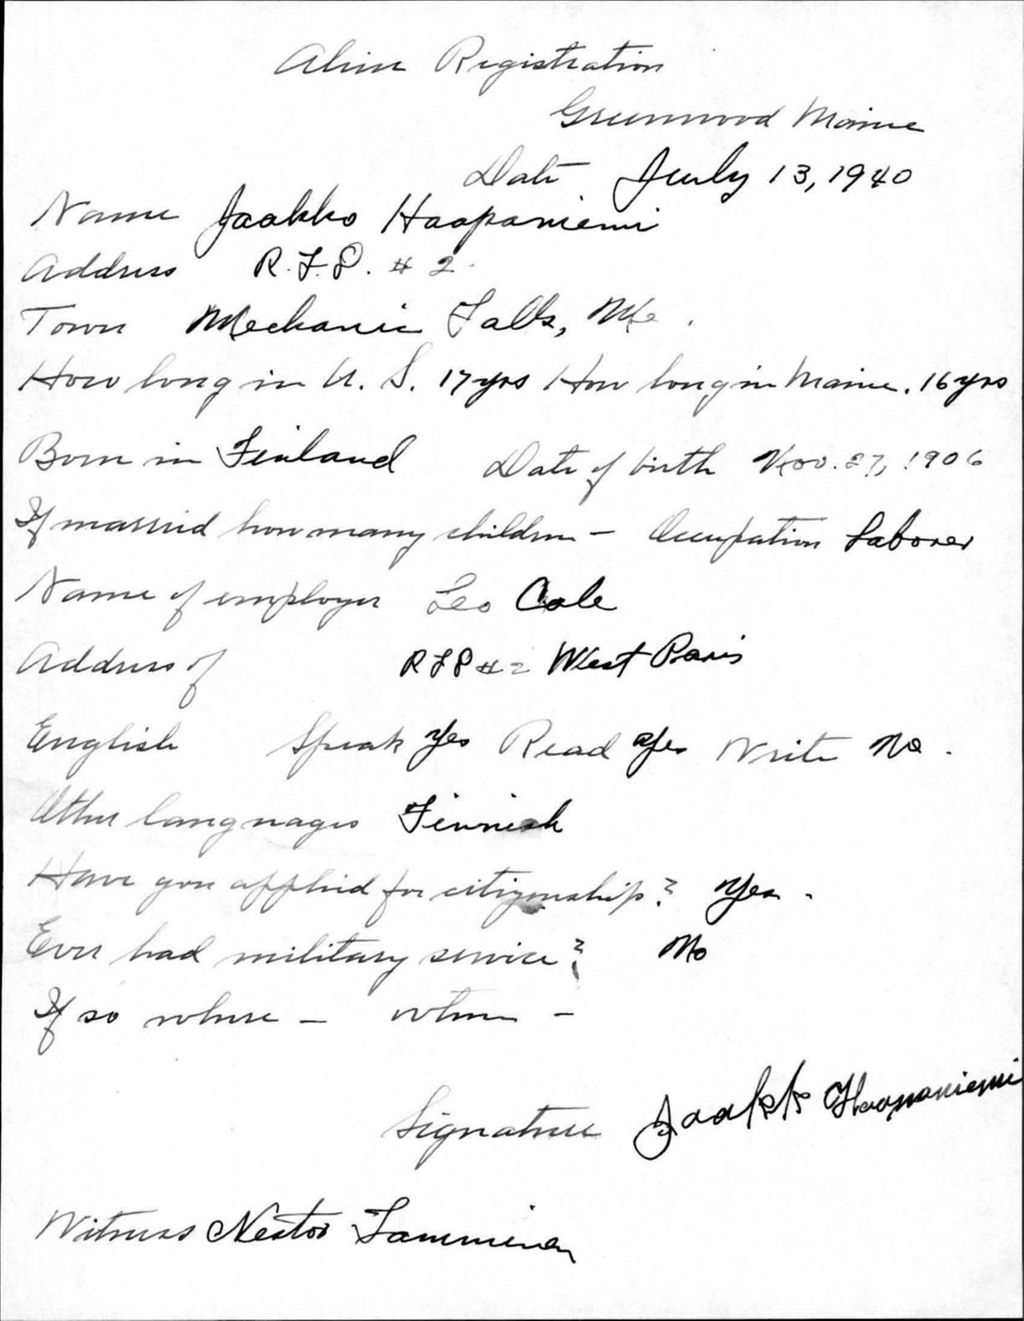 Alien Registration
Greenwood Maine
Date July 13, 1940
Name Jaakko Haapaniemi
Address R.F.D. # 2.
Town Mechanic Falls, Me.
How long in U. S. 17 yrs How long in Maine. 16 yrs
Born in Finland Date of birth Nov. 27, 1906
If married how many children — Occupation Laborer
Name of employer Leo Cole
Address of RFD # 2 West Paris
English Speak Yes Read Yes Write No.
Other languages Finnish
Have you applied for citizenship? Yes.
Ever had military service? No
If so where — when —
Signature Jaakko Haapaniemi
Witness Nestor Tamminen